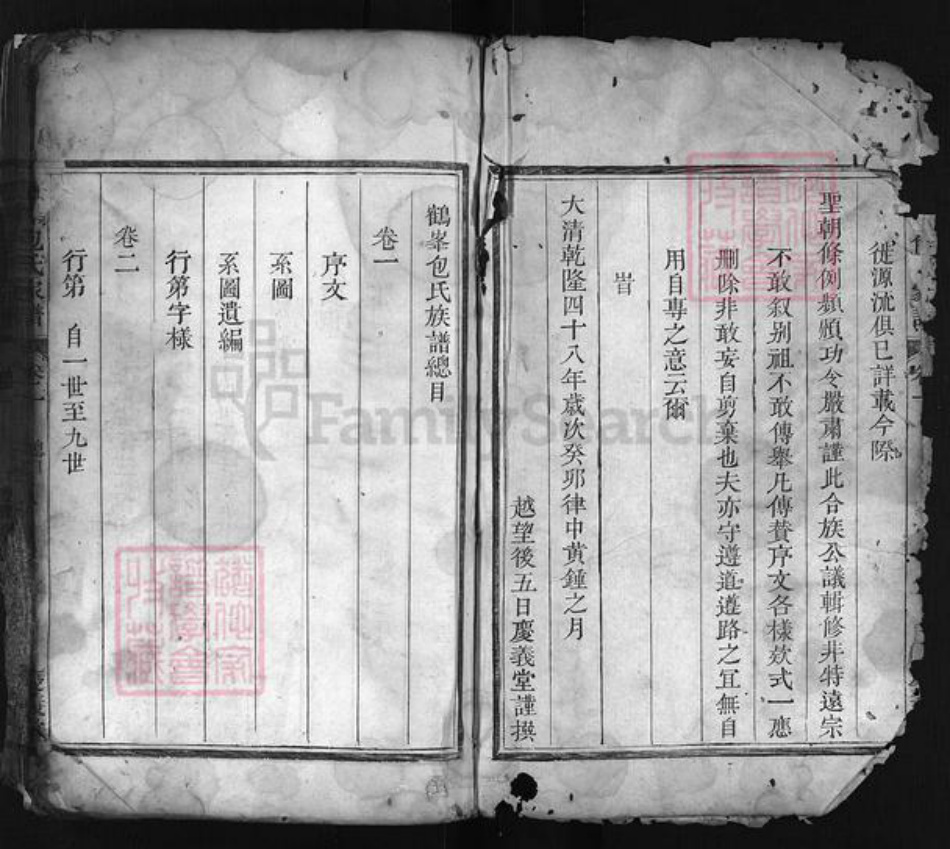 徙源流俱已詳載今際
聖朝條例頻頒功令嚴肅謹此合族公議輯修非特遠宗
不敢叙别祖不敢傳舉凡傳賛序文各樣欵式一應
删除非敢妄自剪棄也夫亦守遵道遵路之宜無自
用自專之意云爾
旹
大清乾隆四十八年歲次癸夘律中黄鍾之月
越望後五日慶義堂謹撰
鶴峯包氏族譜總目
卷一
序文
系圖
系圖遺編
行第字樣
卷二
行第 自一世至九世
FamilySearch